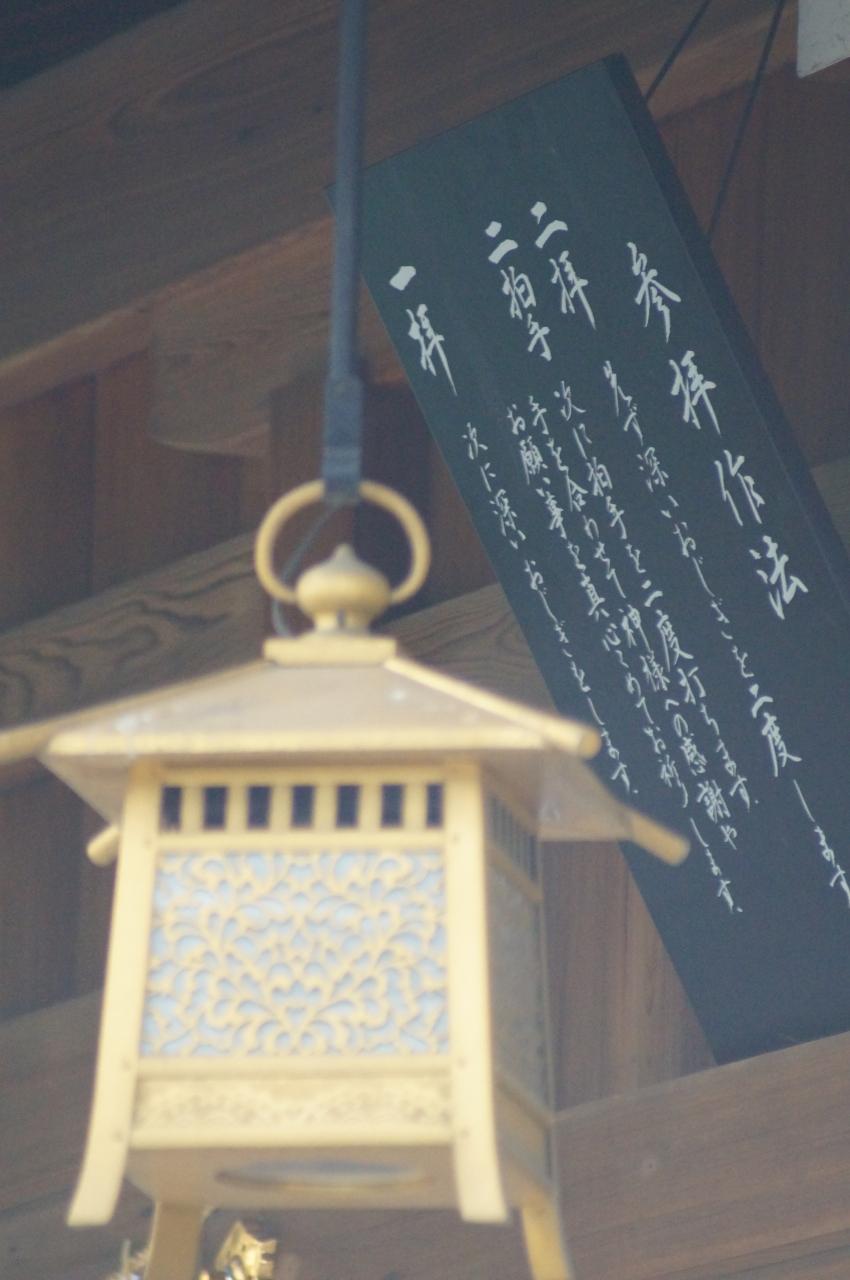 参拝作法
二拝
先づ深いおじぎを二度します
二拍手
次に拍手を二度打ちます。
手を合わせて神様への感謝や
お願い事を真心こめてお祈りします。
一拝
次に深いおじぎをします。